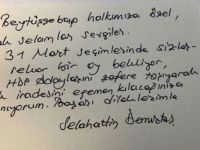 Beytüşşebap halkımıza özel,
selamlar sevgiler.
31 Mart seçimlerinde sizler-
rekor bir oy bekliyor,
HDP adaylarını zafere taşıyarak
iradesini egemen kılacağınıza
inanıyorum. Başarı dileklerimle
Selahattin Demirtaş